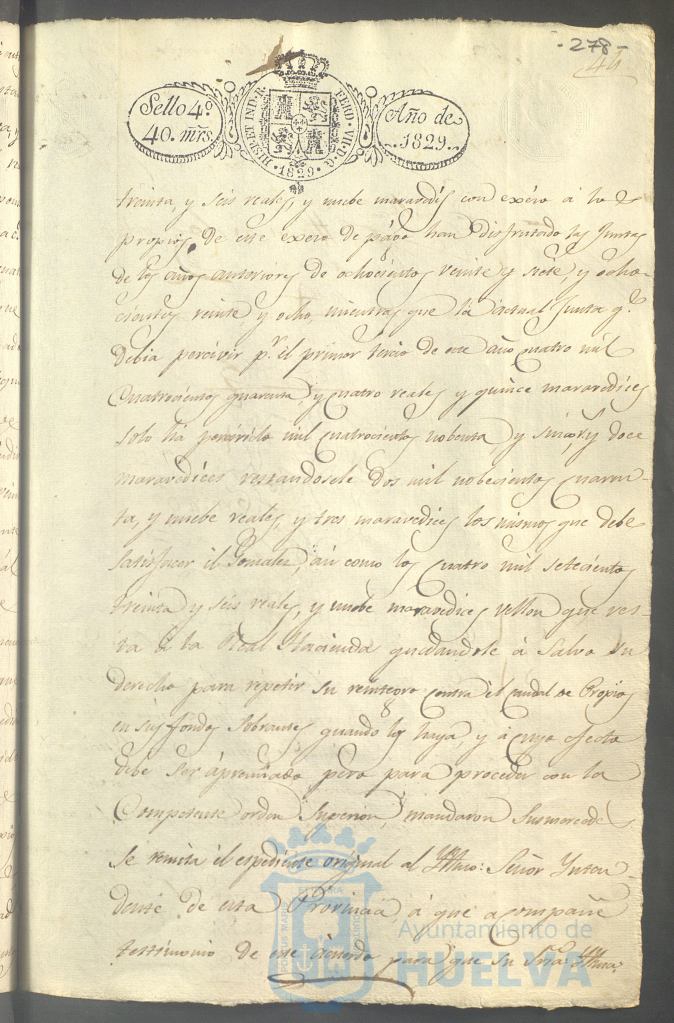 - 278 -
44
Sello 4.º
40. mrs.
HISP. ET IND. R. FERD. VII. D. G. 1829.
Año de
1829.
treinta, y seis reales, y nuebe maravedis con exéso á los
propios, de este exeso de págo han disfrutado las Juntas
de los años anteriores de ochocientos veinte y siete, y ocho-
cientos veinte y ocho, mientras que la actual Junta q.e
debia percivir p.r el primer tercio de este año quatro mil
Cuatrocientos quarenta, y quatro reales y quince maravedices
solo há percivido mil quatrocientos nobenta y cinco, y doce
maravedices restandosele dos mil nobecientos quaren-
ta, y nuebe reales, y tres maravedices los mismos que debe
satisfacer él Gonzalez, asi como los quatro mil setecientos
treinta y seis reales, y nuebe maravedices vellon que res-
ta á la Real Hacienda quedandole á Salvo su
derecho para repetir su reintegro contra él caudal de Propios
en sus fondos sobrantes quando los haya, y á cuyo efecto
debe ser ápremiado pero para proceder con la
Competente orden Superior, mandaron Susmercedes
Se remita él espediente original al Yltmo. Señor Ynten-
dente de esta Provincia, á que acompañe
testimonio de este ácuerdo para que Su Sria. Yltma.
Ayuntamiento de
HUELVA